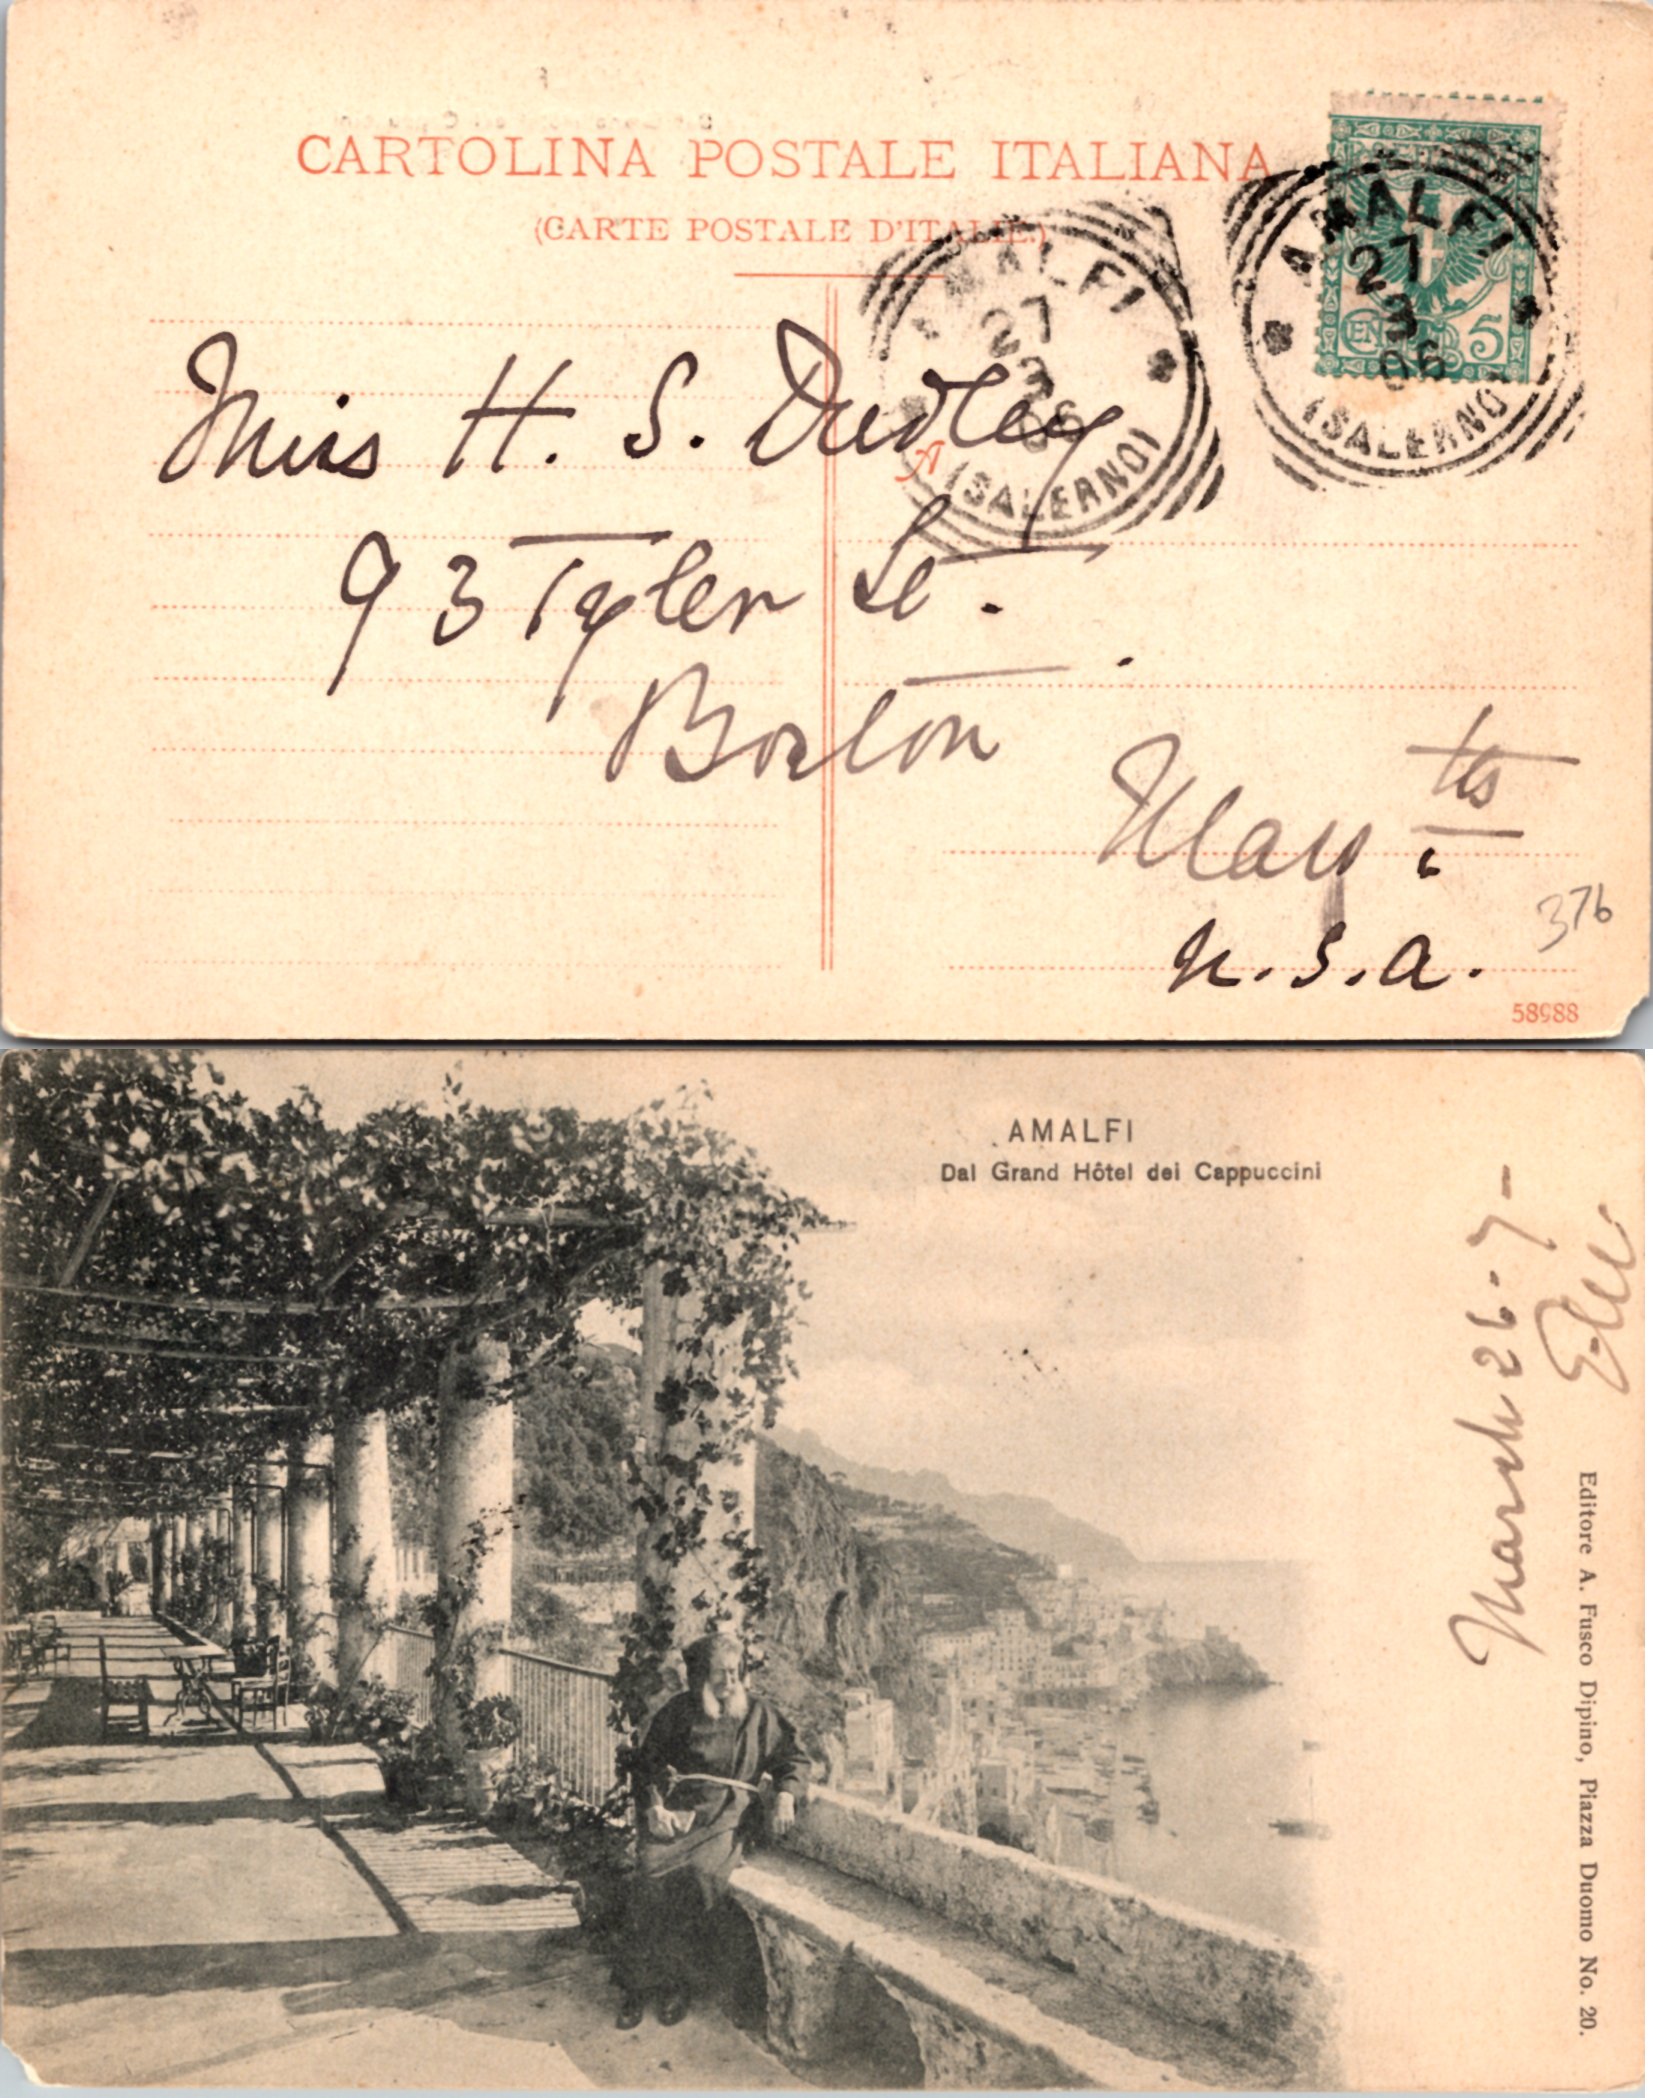 CARTOLINA POSTALE ITALIANA
(CARTE POSTALE D'ITALIE.)
AMALFI
27
3
06
(SALERNO)
AMALFI
27
3
06
(SALERNO)
CENT. 5
Miss H. S. Dudley
93 Tyler St.
Boston
Mass tts
U.S.A.
376
58988
AMALFI
Dal Grand Hôtel dei Cappuccini
March 26-7-
Editore A. Fusco Dipino, Piazza Duomo No. 20.